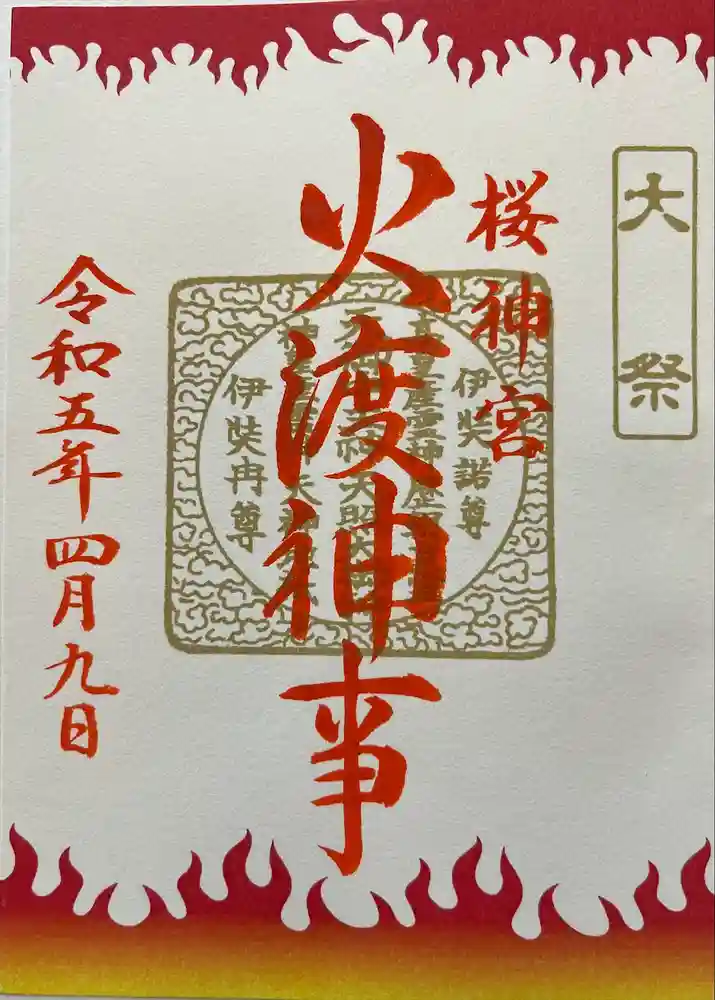 大祭
桜神宮
火渡神事
伊弉諾尊
伊弉冉尊
令和五年四月九日